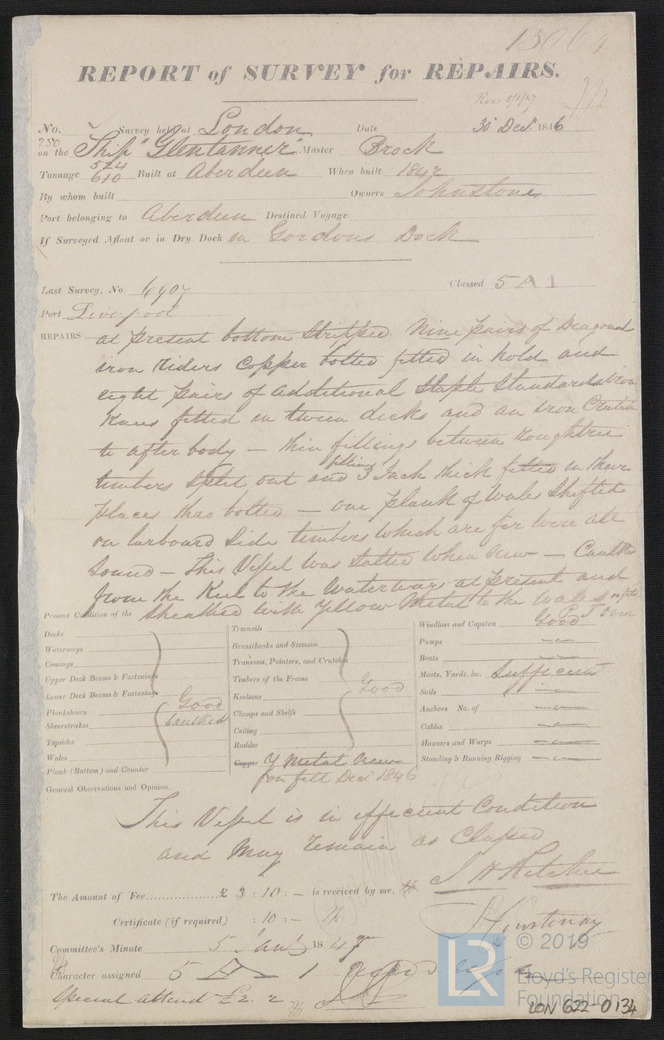 REPORT of SURVEY for REPAIRS.
No. Survey held at London Date 30 Decr. 1846
on the Ship "Glentanner" Master Brock
Tonnage 524 610 Built at Aberdeen When built 1842
By whom built Owners Johnstone
Port belonging to Aberdeen Destined Voyage
If Surveyed Afloat or in Dry Dock in Gordons Dock
Last Survey, No. 6907 Classed 5 A 1
Port Liverpool
REPAIRS at present bottom Stripped Nine pairs of Diagonal
iron Riders Copper bolted fitted in hold and
eight pairs of additional Staple Standards & iron
Knees fitted in tween decks and an iron Crutch
to after body — thin fillings between Roughtree
timbers Split out and fillings 3 Inch thick fitted in their
places thro bolted — one plank of Wales Shifted
on larboard Side timbers which are fir were all
Sound — This Vessel was Salted When New — Caulked
from the Keel to the Waterways at present and
Sheathed with Yellow Metal to the Wales
Present Condition of the
Decks
Waterways
Comings
Upper Deck Beams & Fastenings
Lower Deck Beams & Fastenings
Planksheers Good
Sheerstrakes Caulked
Topsides
Wales
Plank (Bottom) and Counter
Treenails
Breasthooks and Stemson
Transoms, Pointers, and Crutches
Timbers of the Frame
Keelsons Good
Clamps and Shelfs
Ceiling
Rudder
Copper Y Metal New
on felt Decr 1846
Windlass and Capstan Good
Pumps —
Boats —
Masts, Yards, &c. Sufficient
Sails —
Anchors No. of —
Cables —
Hawsers and Warps —
Standing & Running Rigging —
General Observations and Opinion,
This Vessel is in efficient Condition
and May remain as Classed
The Amount of Fee £ 3 : 10 : — is received by me,
J H Ritchie
Certificate (if required) : 10 : —
Committee's Minute 5 Jany 1847
Character assigned 5 A 1
Special attend £2. 2
LR © 2019
Lloyd's Register
Foundation
LON 622-0134